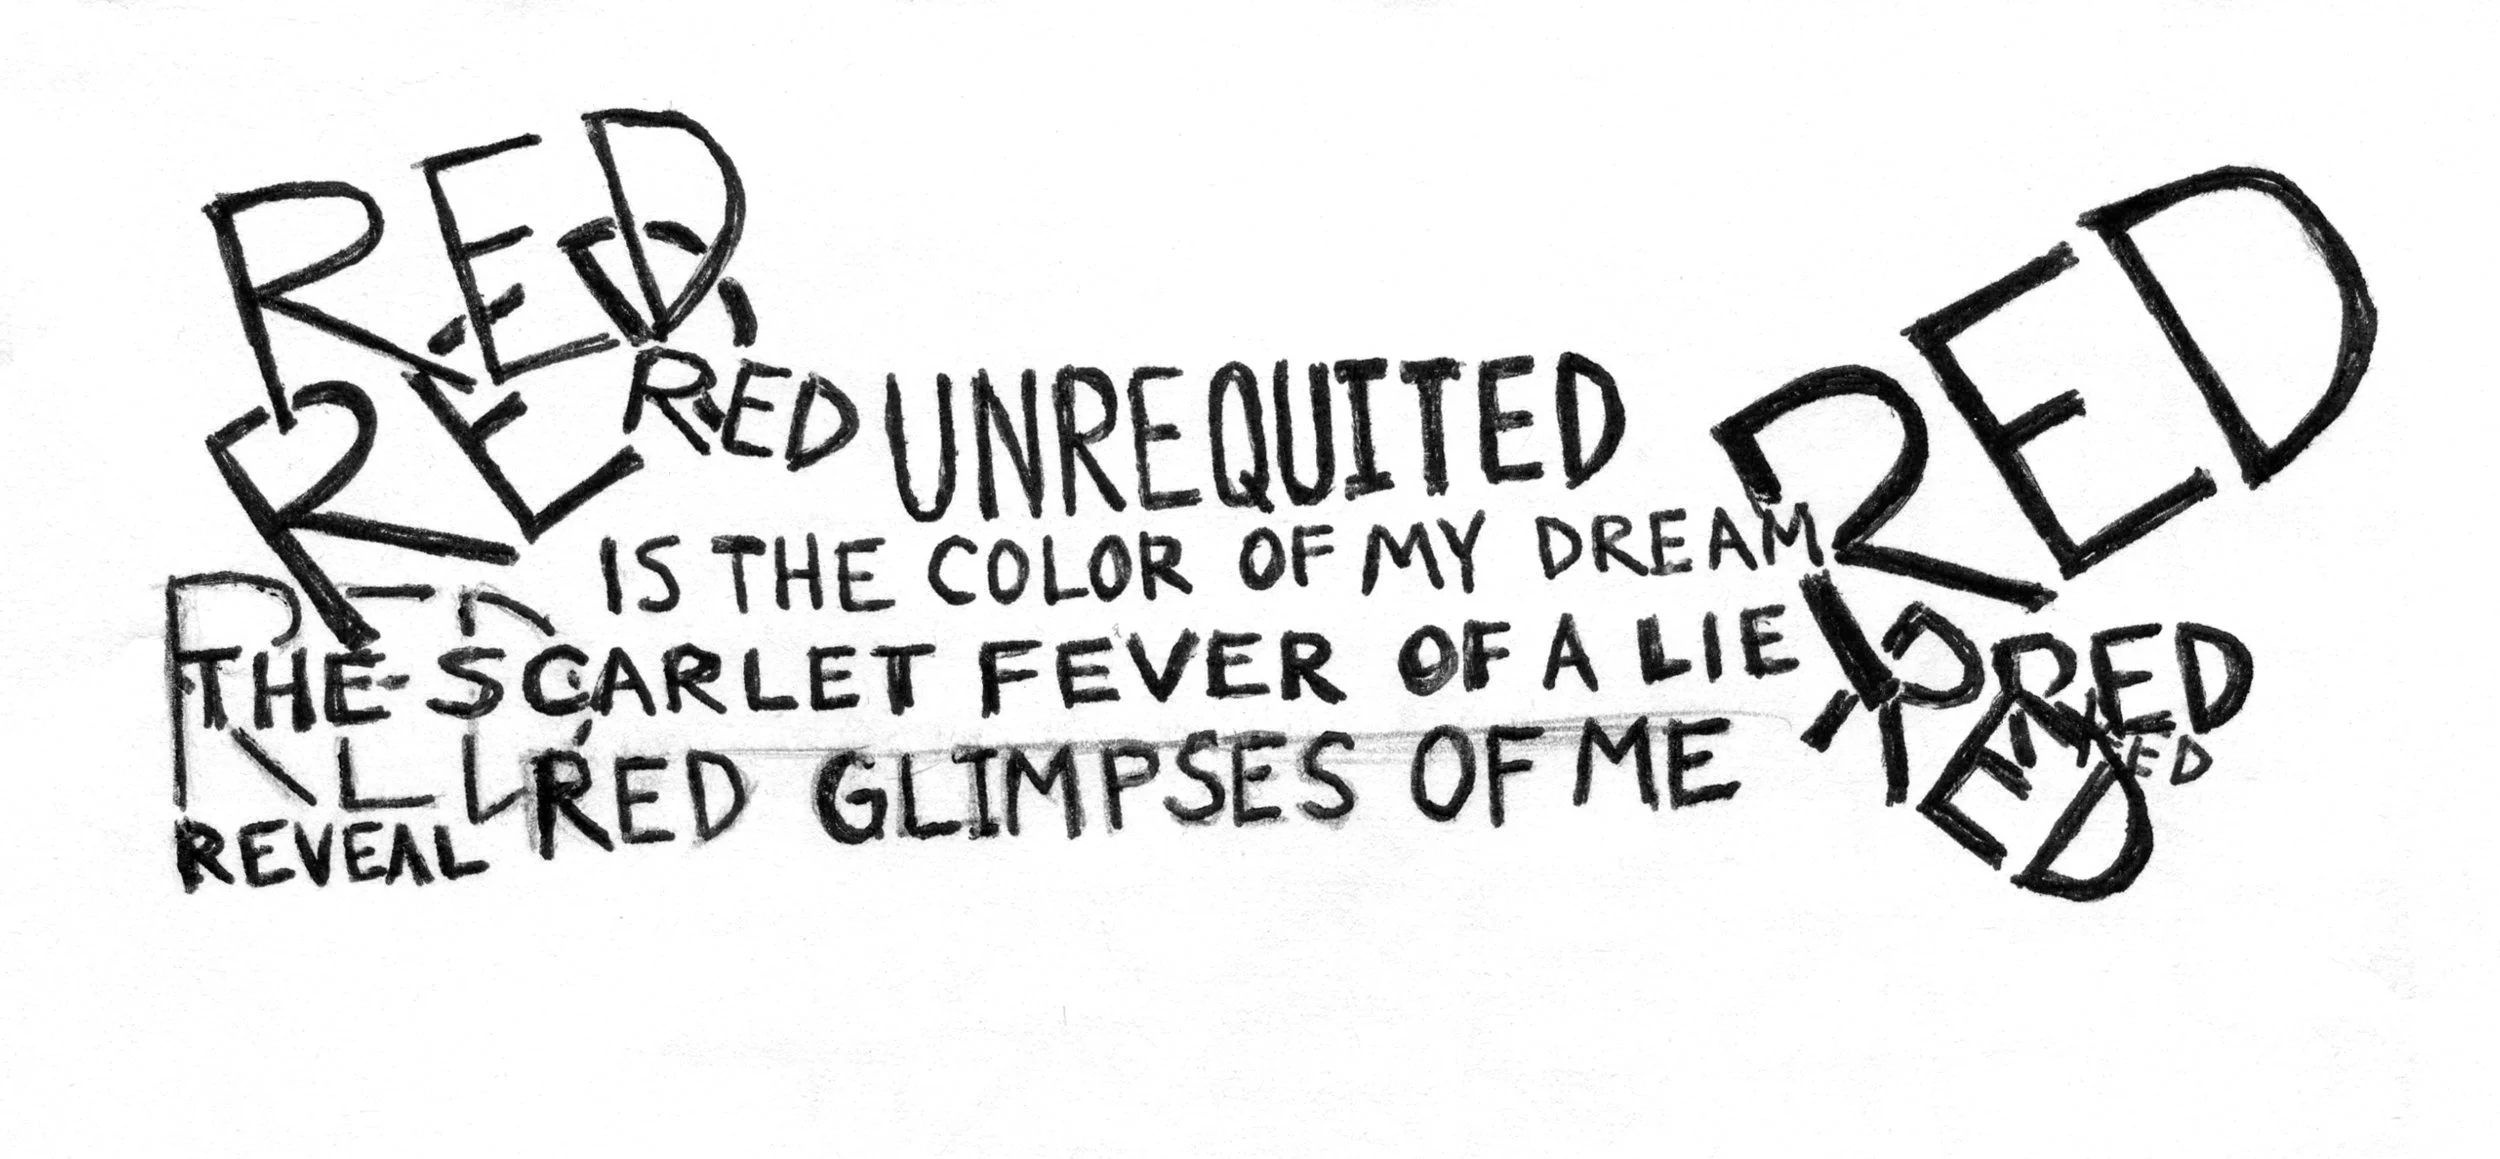 RED
RED
RED UNREQUITED
RED
IS THE COLOR OF MY DREAM
RED
THE SCARLET FEVER OF A LIE
RED
RED
RED
REVEAL RED GLIMPSES OF ME